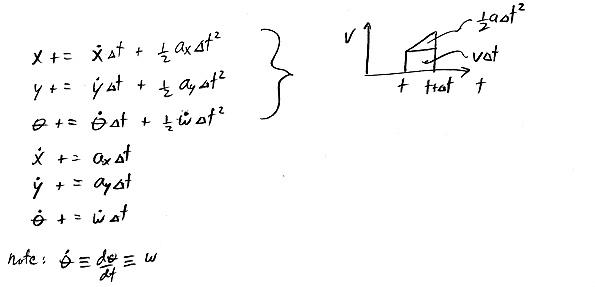 x += ẋΔt + ½ aₓΔt²
y += ẏΔt + ½ a_yΔt²
θ += θ̇Δt + ½ ẇΔt²
ẋ += aₓΔt
ẏ += a_yΔt
θ̇ += ẇΔt
note: θ̇ ≡ dθ/dt ≡ w
½aΔt²
v
vΔt
t t+Δt t